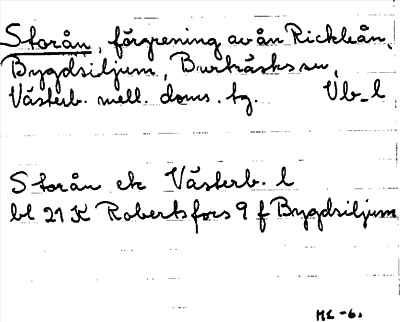 Storån, förgrening av ån Rickleån,
Bygdsiljum, Burträsks sn,
Västerb. mell. doms. tg. Vb_l
Storån ek Västerb. l
bl 21 K Robertsfors 9 f Bygdsiljum